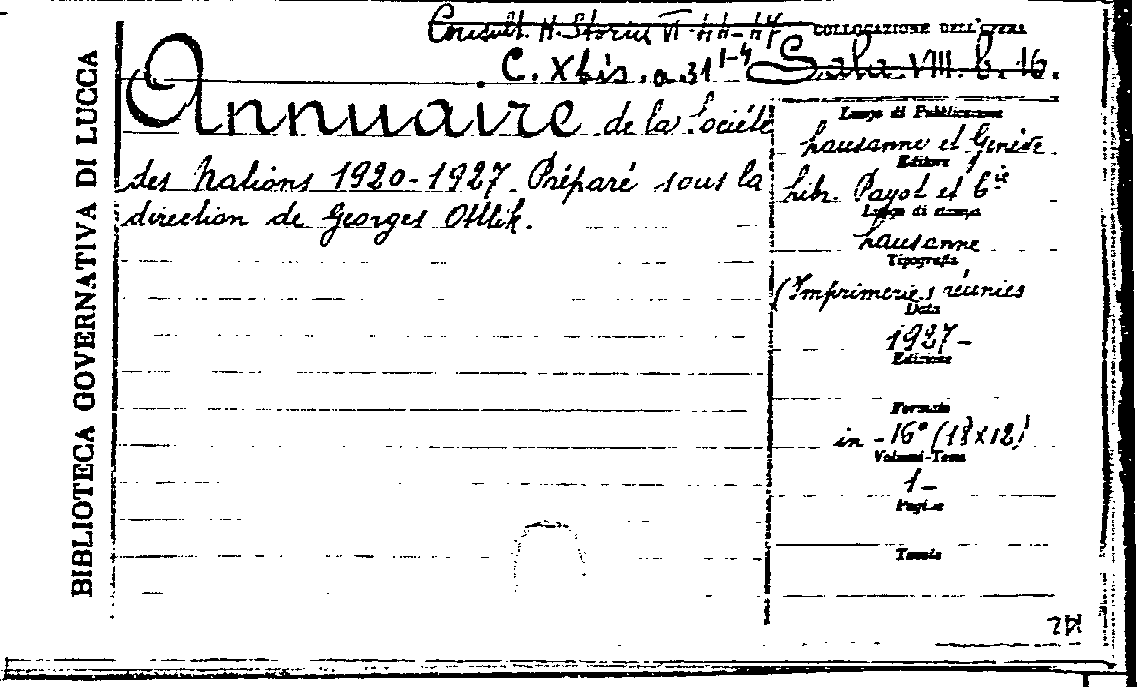 BIBLIOTECA GOVERNATIVA DI LUCCA
Consult. H. Storia VI. 44-47
COLLOCAZIONE DELL'OPERA
C. Xbis. a. 31 1-4 Sala. VIII. b. 16.
Annuaire de la Société
des Nations 1920-1927. Préparé sous la
direction de Georges Ottlik.
Luogo di Pubblicazione
Lausanne et Genève
Editore
Libr. Payot et Cie
Luogo di stampa
Lausanne
Tipografia
(Imprimeries réunies
Data
1927-
Edizione
Formato
in-16° (18x12)
Volumi-Tomi
1-
Pagine
Tavole